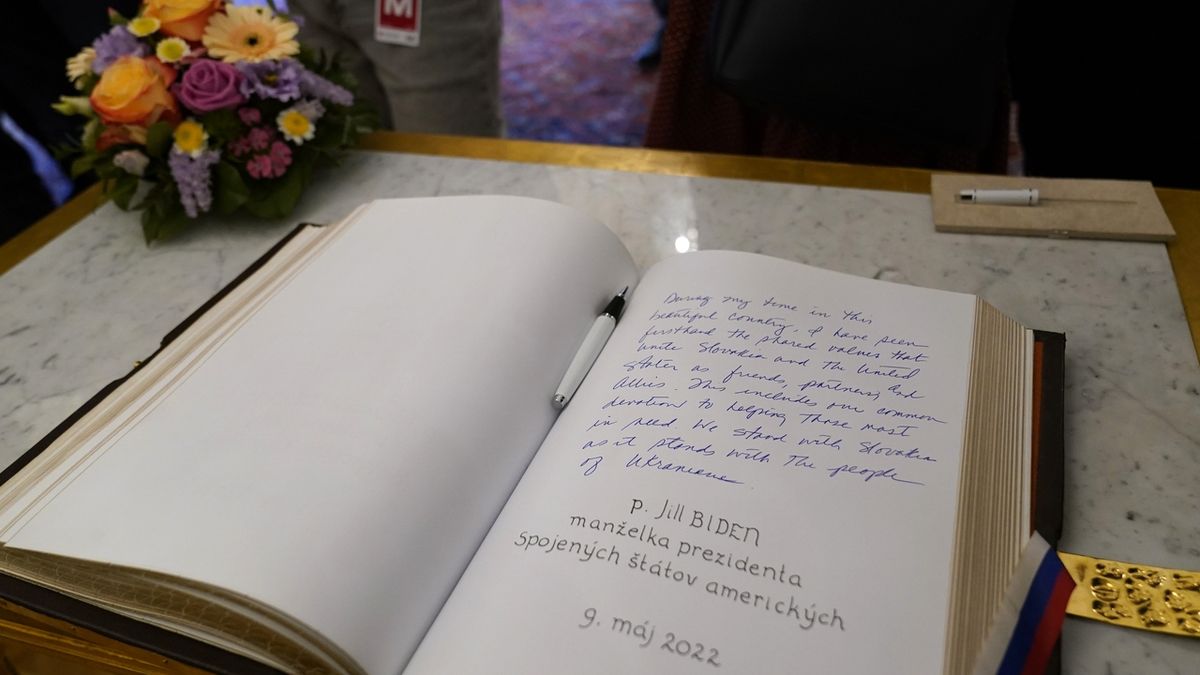 M
During my time in this
beautiful country, I have seen
firsthand the shared values that
unite Slovakia and The United
States as friends, partners, and
Allies. This includes our common
devotion to helping those most
in need. We stand with Slovakia
as it stands with The people
of Ukraine
p. Jill BIDEN
manželka prezidenta
spojených štátov amerických
9. máj 2022